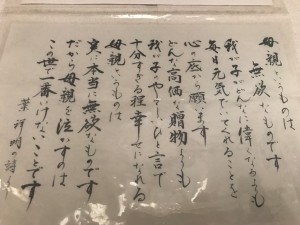 母親というものは
無欲なものです
我が子がどんなに偉くなるよりも
毎日元気でいてくれることを
心の底から願います
どんな高価な贈物よりも
我が子のやさしいひと言で
十分すぎる程幸せになれる
母親というものは
実に本当に無欲なものです
だから母親を泣かすのは
この世で一番いけないことです
葉祥明の詩